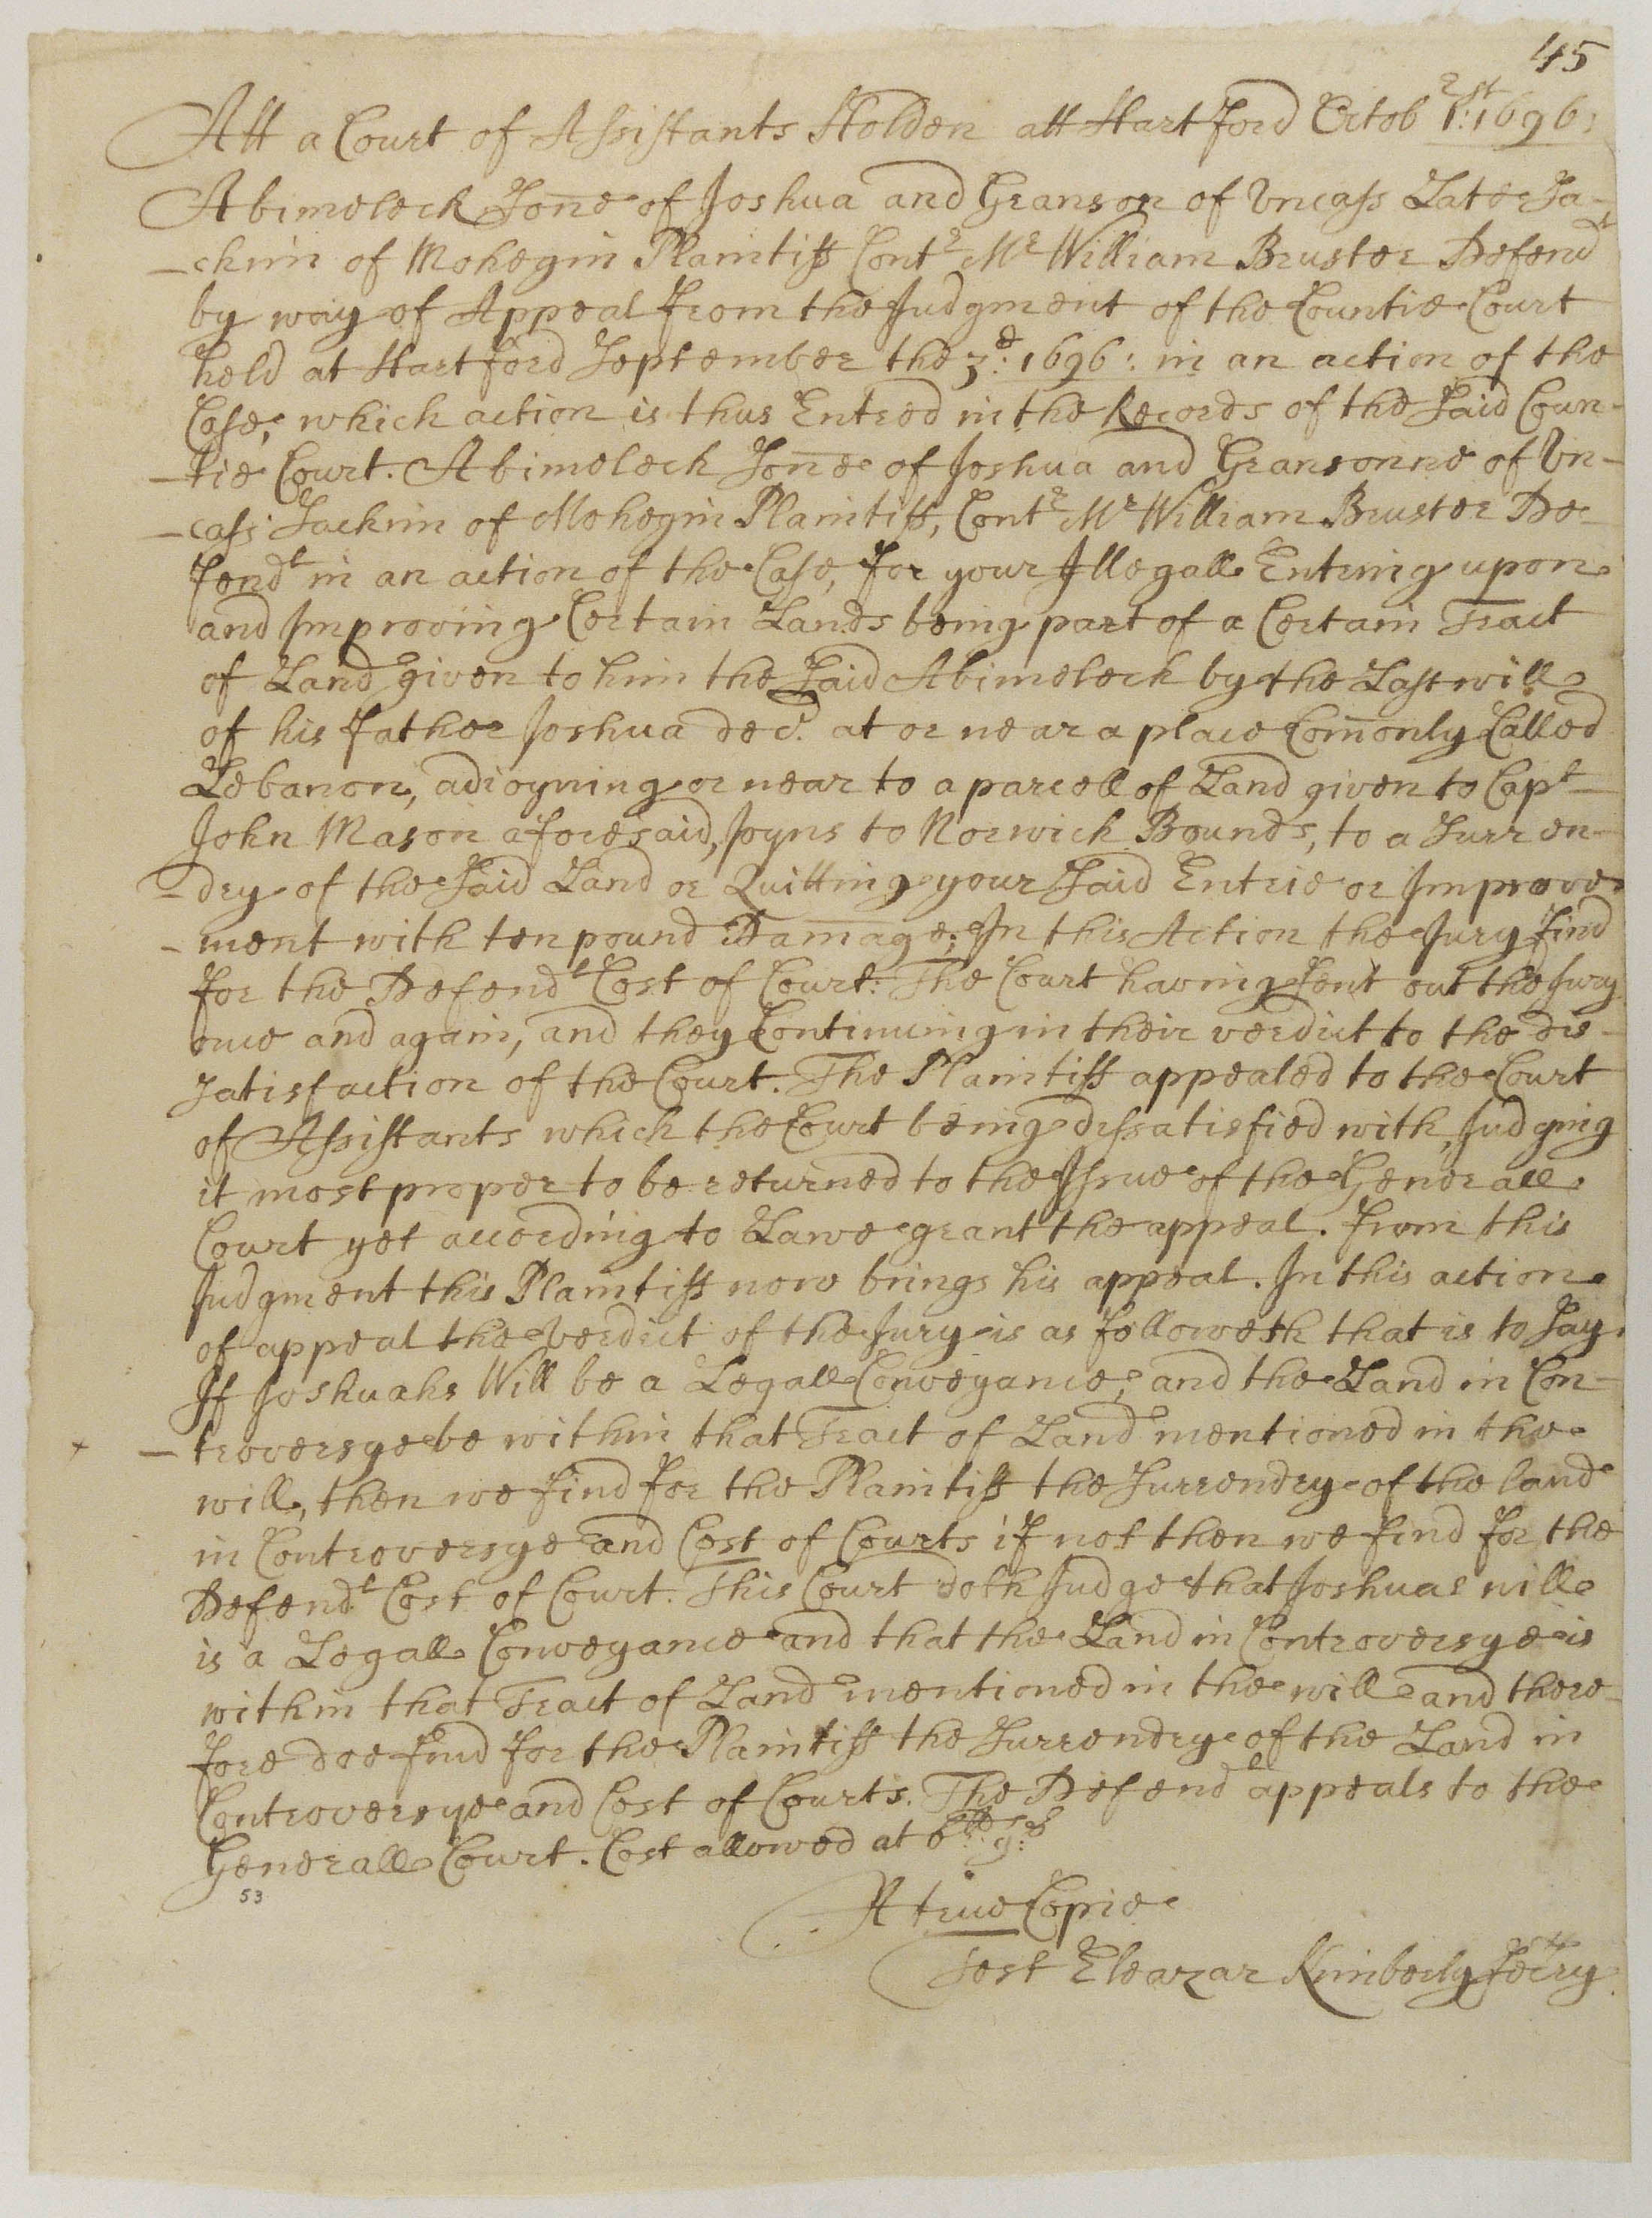 45
Att a Court of Assistants Holden att Hartford Octobr 1st: 1696:
Abimeleck Sone of Joshua and Granson of Uncass Late Sa-
-chim of Mohegin Plaintiff Contr Mr William Bruster Defendt
by way of Appeal from the Judgment of the Countie Court
held at Hartford September the 3d: 1696: in an action of the
Case, which action is thus Entred in the Records of the Said Coun-
-tie Court. Abimeleck Sone of Joshua and Gransonne of Un-
-cass Sachim of Mohegin Plaintiff, Contr Mr William Bruster De-
fendt in an action of the Case, for your Illegall Entring upon
and Improving Certain Lands being part of a Certain Tract
of Land given to him the Said Abimeleck by the Last will
of his father Joshua decd. at or near a place Comonly Called
Lebanon, adioyning or near to a parcell of Land given to Capt
John Mason aforesaid, Joyns to Norwich Bounds, to a Surren-
-dry of the Said Land or Quitting your Said Entrie or Improve
-ment with ten pound Damage; In this Action the Jury find
for the Defendt Cost of Court: The Court having Sent out the Jury
once and again, and they Continuing in their verdict to the dis-
satisfaction of the Court. The Plaintiff appealed to the Court
of Assistants which the Court being dissatisfied with, Judging
it most proper to be returned to the Issue of the Generall
Court yet according to Lawe grant the appeal. From this
Judgment this Plaintiff now brings his appeal. In this action
of appeal the verdict of the Jury is as followeth that is to Say
If Joshuahs Will be a Legall Conveyance, and the Land in Con-
-troversye be within that Tract of Land mentioned in the
will, then we find for the Plaintiff the Surrendry of the land
in Controversye and Cost of Courts if not then we find for the
Defendt Cost of Court. This Court doth Judge that Joshuas will
is a Legall Conveyance and that the Land in Controversye is
within that Tract of Land mentioned in the will and there-
fore doe find for the Plaintiff the Surrendry of the Land in
Controversye and Cost of Courts. The Defendt appeals to the
Generall Court. Cost allowed at
53
A true Copie
Test Eleazar Kimberly Secry